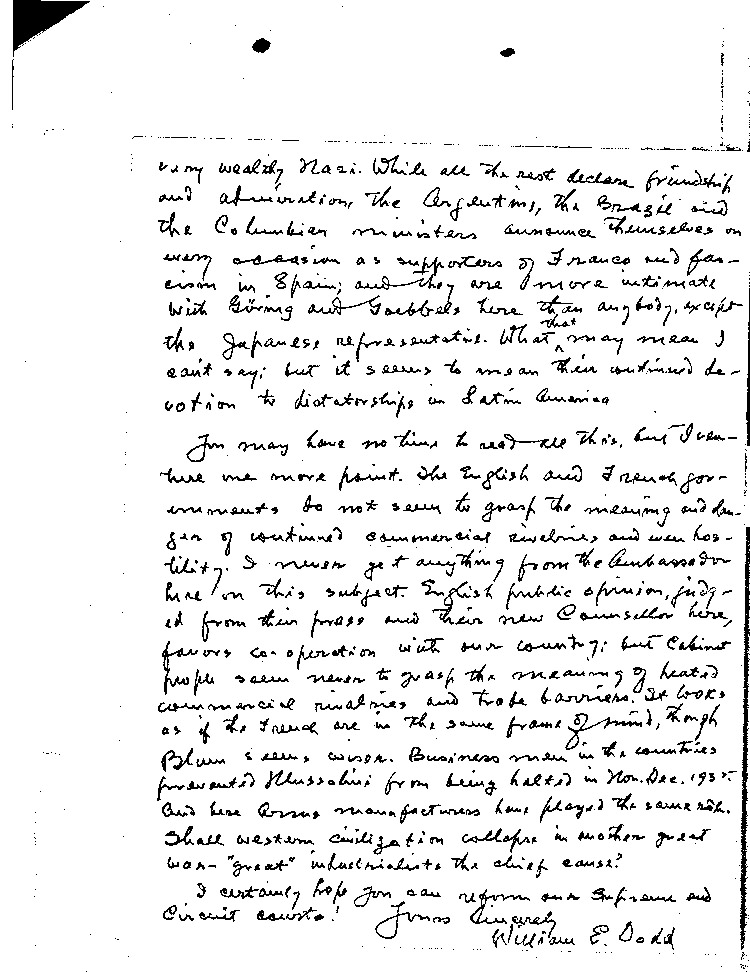 very wealthy Nazi. While all the rest declare friendship
and admiration, the Argentine, the Brazil and
the Columbian ministers announce themselves on
every occasion as supporters of Franco and fas-
cism in Spain; and they are more intimate
with Göring and Goebbels here than anybody, except
the Japanese representative. What that may mean I
can't say; but it seems to mean their continued de-
votion to dictatorships in Latin America
You may have no time to read all this, but I ven-
ture one more point. The English and French gov-
ernments do not seem to grasp the meaning and dan-
ger of continued commercial rivalries and even hos-
tility. I never get anything from the Ambassador
here on this subject. English public opinion, judg-
ed from their press and their new Counsellor here,
favors co-operation with our country; but Cabinet
people seem never to grasp the meaning of heated
commercial rivalries and trade barriers. It looks
as if the French are in the same frame of mind, though
Blum seems wiser. Business men in the countries
prevented Mussolini from being halted in Nov. Dec. 1935.
And here Arms manufacturers have played the same role.
Shall western civilization collapse in another great
war - "great" industrialists the chief cause?
I certainly hope you can reform our Supreme and
Circuit courts!
Yours Sincerely
William E. Dodd